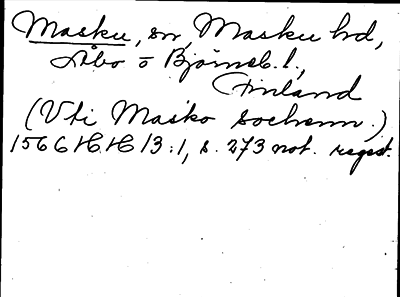 Masku, sn, Masku hd,
Åbo o Björneb. l.,
Finland
(Uti Masko sochenn.)
1566 HH 13:1, s. 273 not. regest.